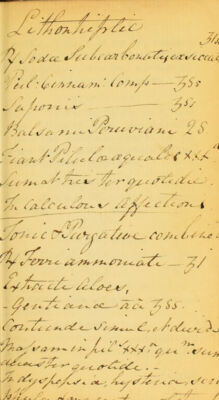 Lithonhiptic
℞ Sodæ Subcarbonatis exsiccat
Pul: Cinnam: Comp — ʒss
Saponis — ʒss
Balsami Peruviani 2S
Fiant Pilulæ æquales xxx
Sumat tres ter quotidie
In Calculous Affections
Tonic & Purgative combined
℞ Ferri ammoniate ʒ1
Extracti Aloes,
- Gentianæ āā ʒss.
Contunde simul, et divide
massam in pil xxx
ter quotidie.
In dyspepsia, hysteria,